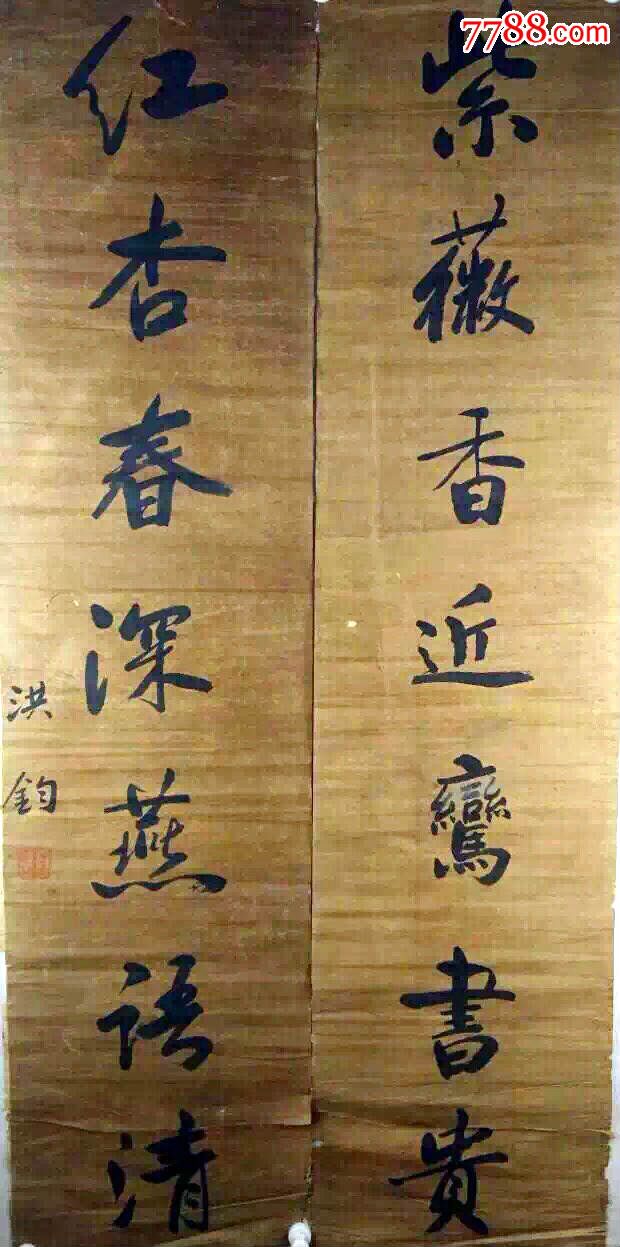 7788.com
紫薇香近鸞書貴
红杏春深燕語清
洪鈞